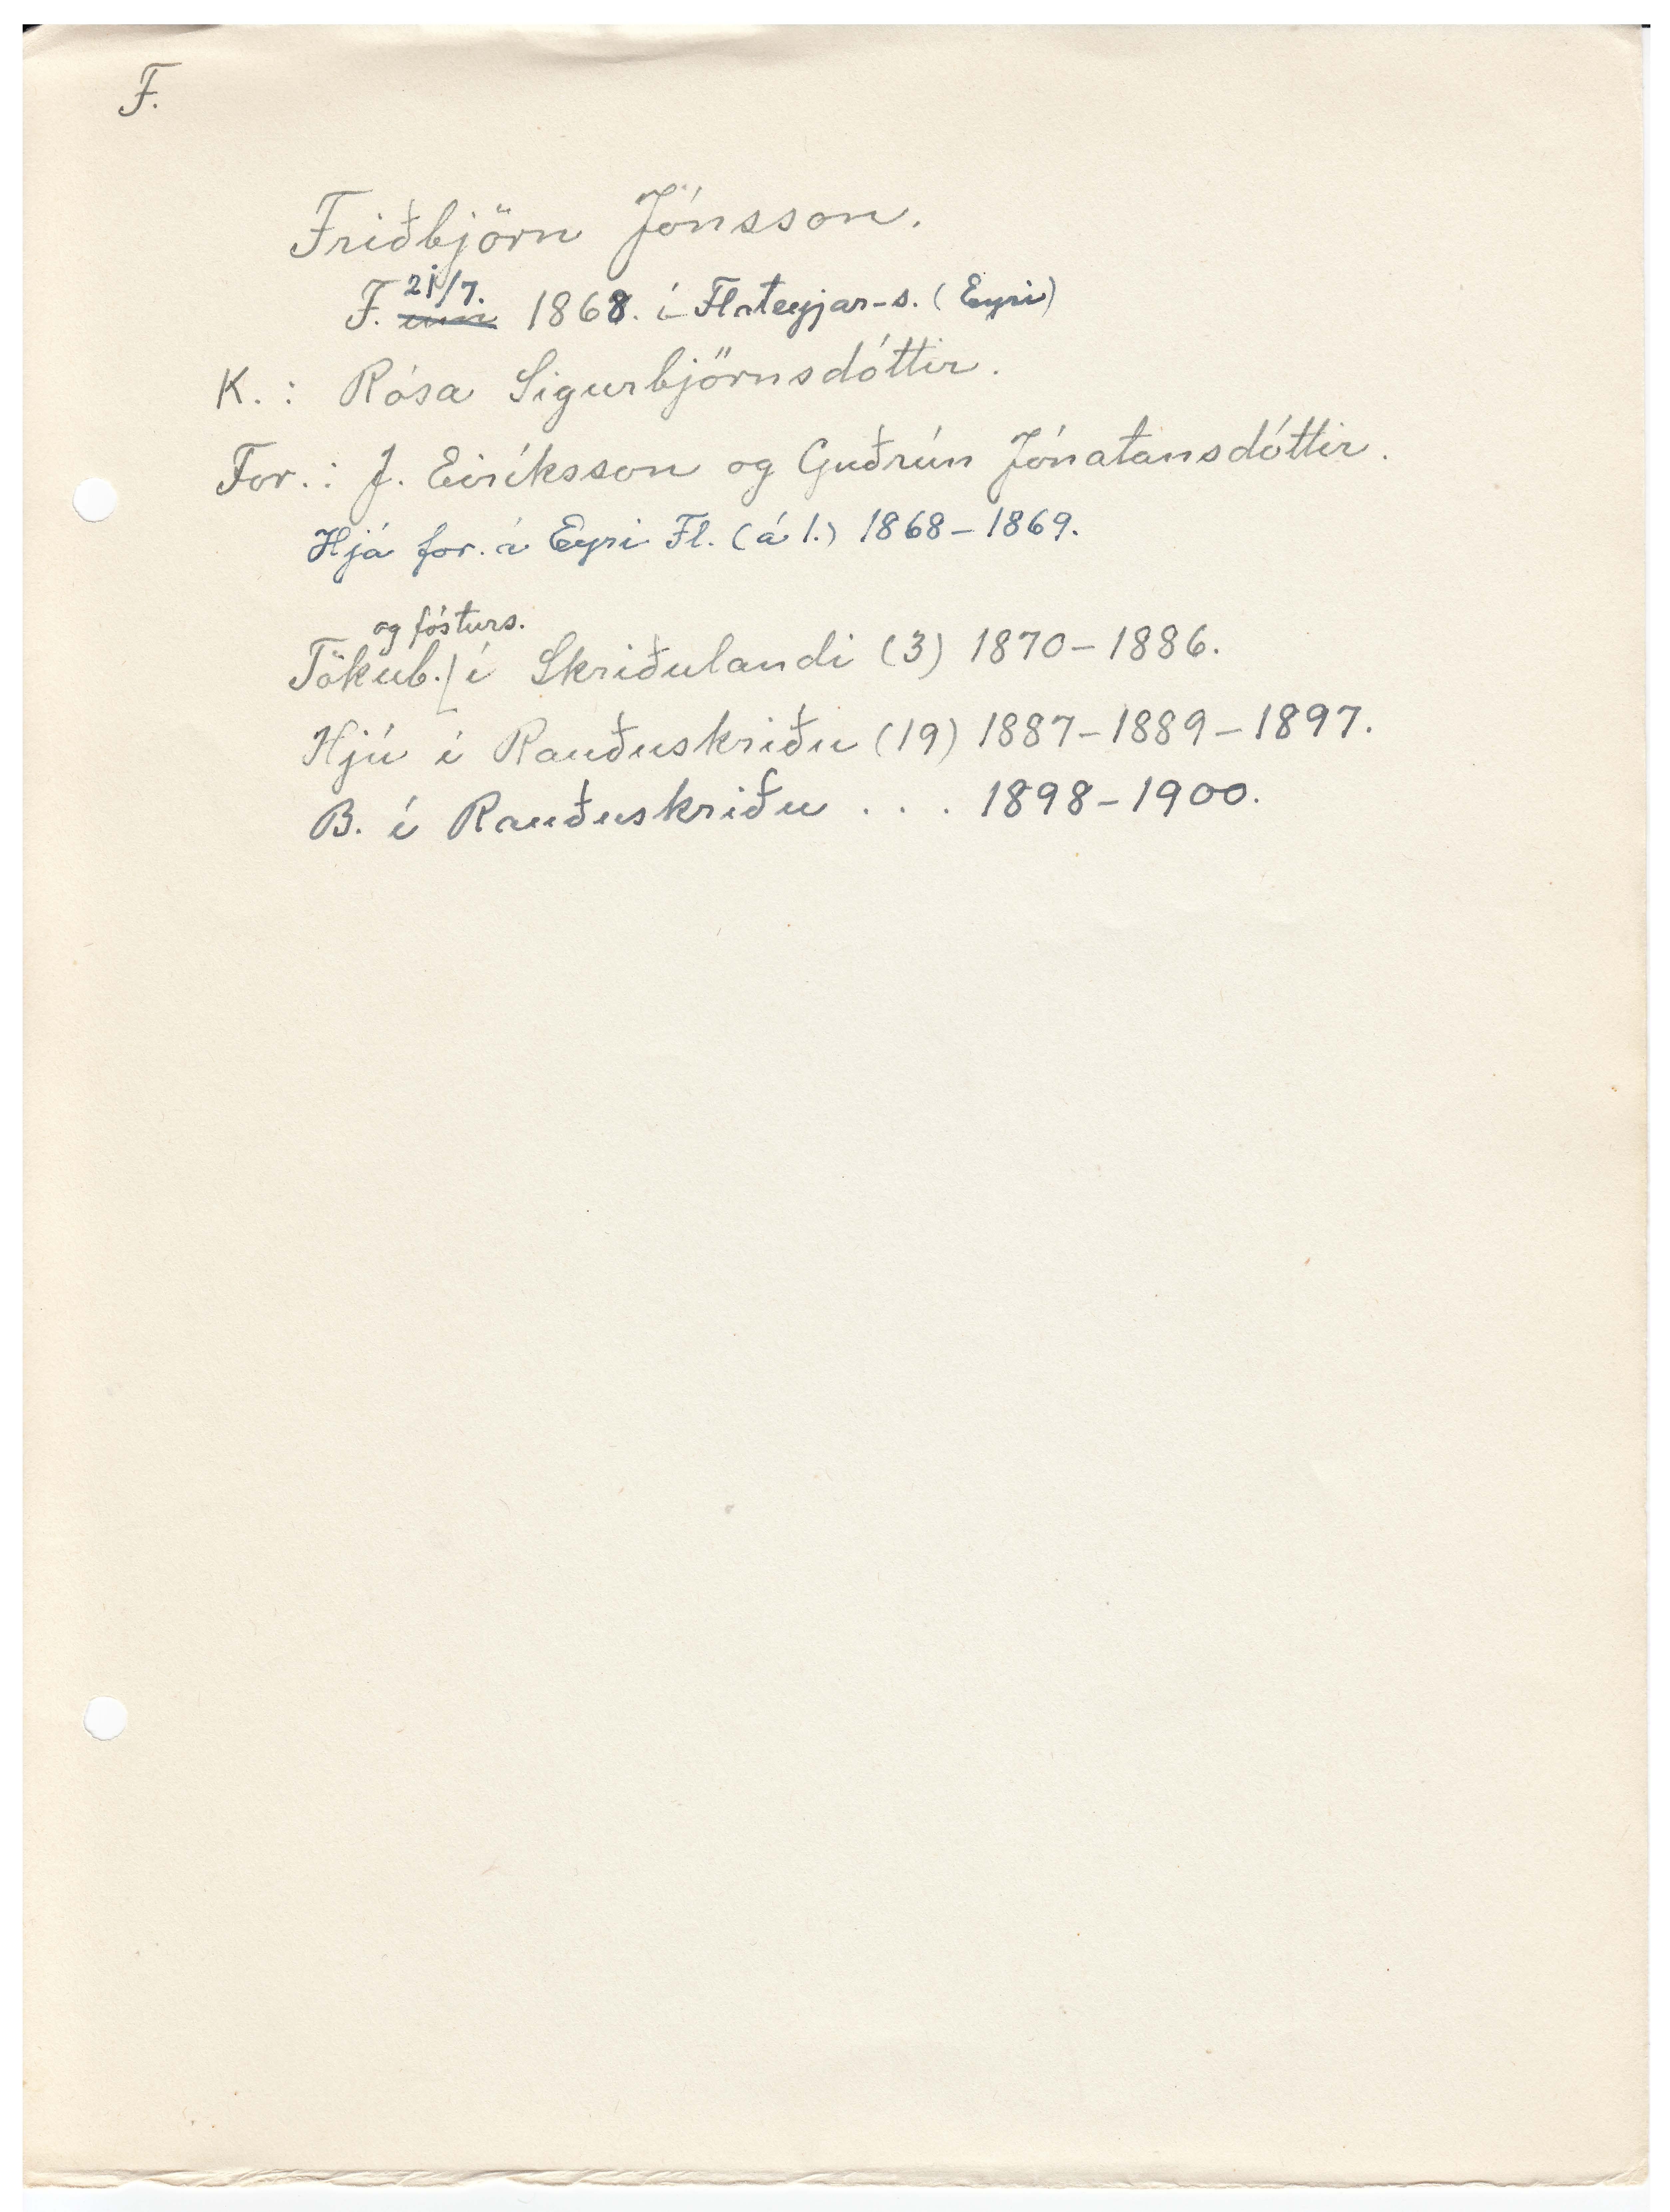 F.
Friðbjörn Jónsson.
F. 21/7. 1868. í Flateyjar-s. (Eyri)
K.: Rósa Sigurbjörnsdóttir.
For.: J. Eiríksson og Guðrún Jónatansdóttir.
Hjá for. á Eyri Fl. (á 1.) 1868-1869.
og fósturs.
Tökub./ í Skriðulandi (3) 1870-1886.
Hjú í Rauðuskriðu (19) 1887-1889-1897.
B. í Rauðuskriðu . . . 1898-1900.